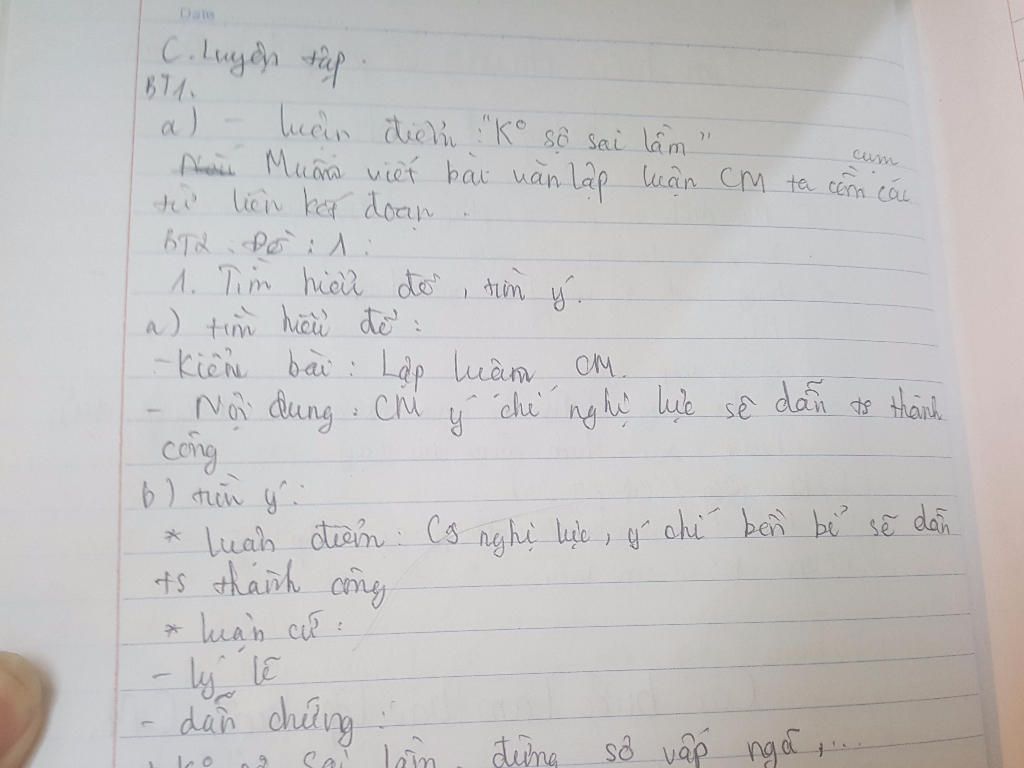 Date
C. Luyện tập.
BT1.
a) - luận điểm: "K° sợ sai lầm"
cụm
Muốn viết bài văn lập luận CM ta cần các
từ liên kết đoạn.
BT2. Đề: 1:
1. Tìm hiểu đề, tìm ý.
a) tìm hiểu đề:
- Kiểu bài: Lập luận CM.
- Nội dung: CM ý chí nghị lực sẽ dẫn ts thành
công
b) tìm ý:
* luận điểm: Có nghị lực, ý chí bền bỉ sẽ dẫn
ts thành công
* luận cứ:
- lý lẽ
- dẫn chứng:
K° sợ sai lầm, đừng sợ vấp ngã,...